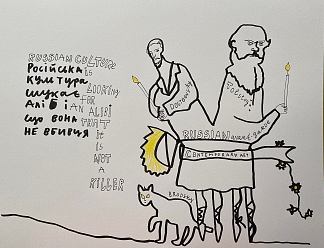 RUSSIAN CULTURE
IS
LOOKING
FOR
AN ALIBI
THAT
IT
IS
NOT
A
KILLER
РОСІЙСЬКА
КУЛЬТУРА
ШУКАЄ
АЛІБІ
ЩО ВОНА
НЕ ВБИВЦЯ
Dostoevsky
Tolstoy
RUSSIAN avant-garde
CONTEMPORARY ART
BRODSKY